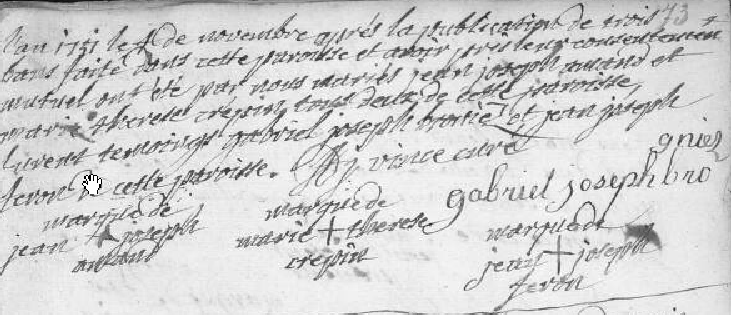 73
l'an 1751 le 4 de novembre après la publication de trois
bans faite dans cette paroisse et avoir pris leur consentement
mutuel ont été par nous mariés jean joseph amand et
marie therese crepin tous deux de cette paroisse,
furent temoings gabriel joseph broniez et jean joseph
feron de cette paroisse. vince curé
gabriel joseph bro
gniez
marque de
jean + joseph
amand
marque de
marie + therese
crepin
marque de
jean + joseph
feron